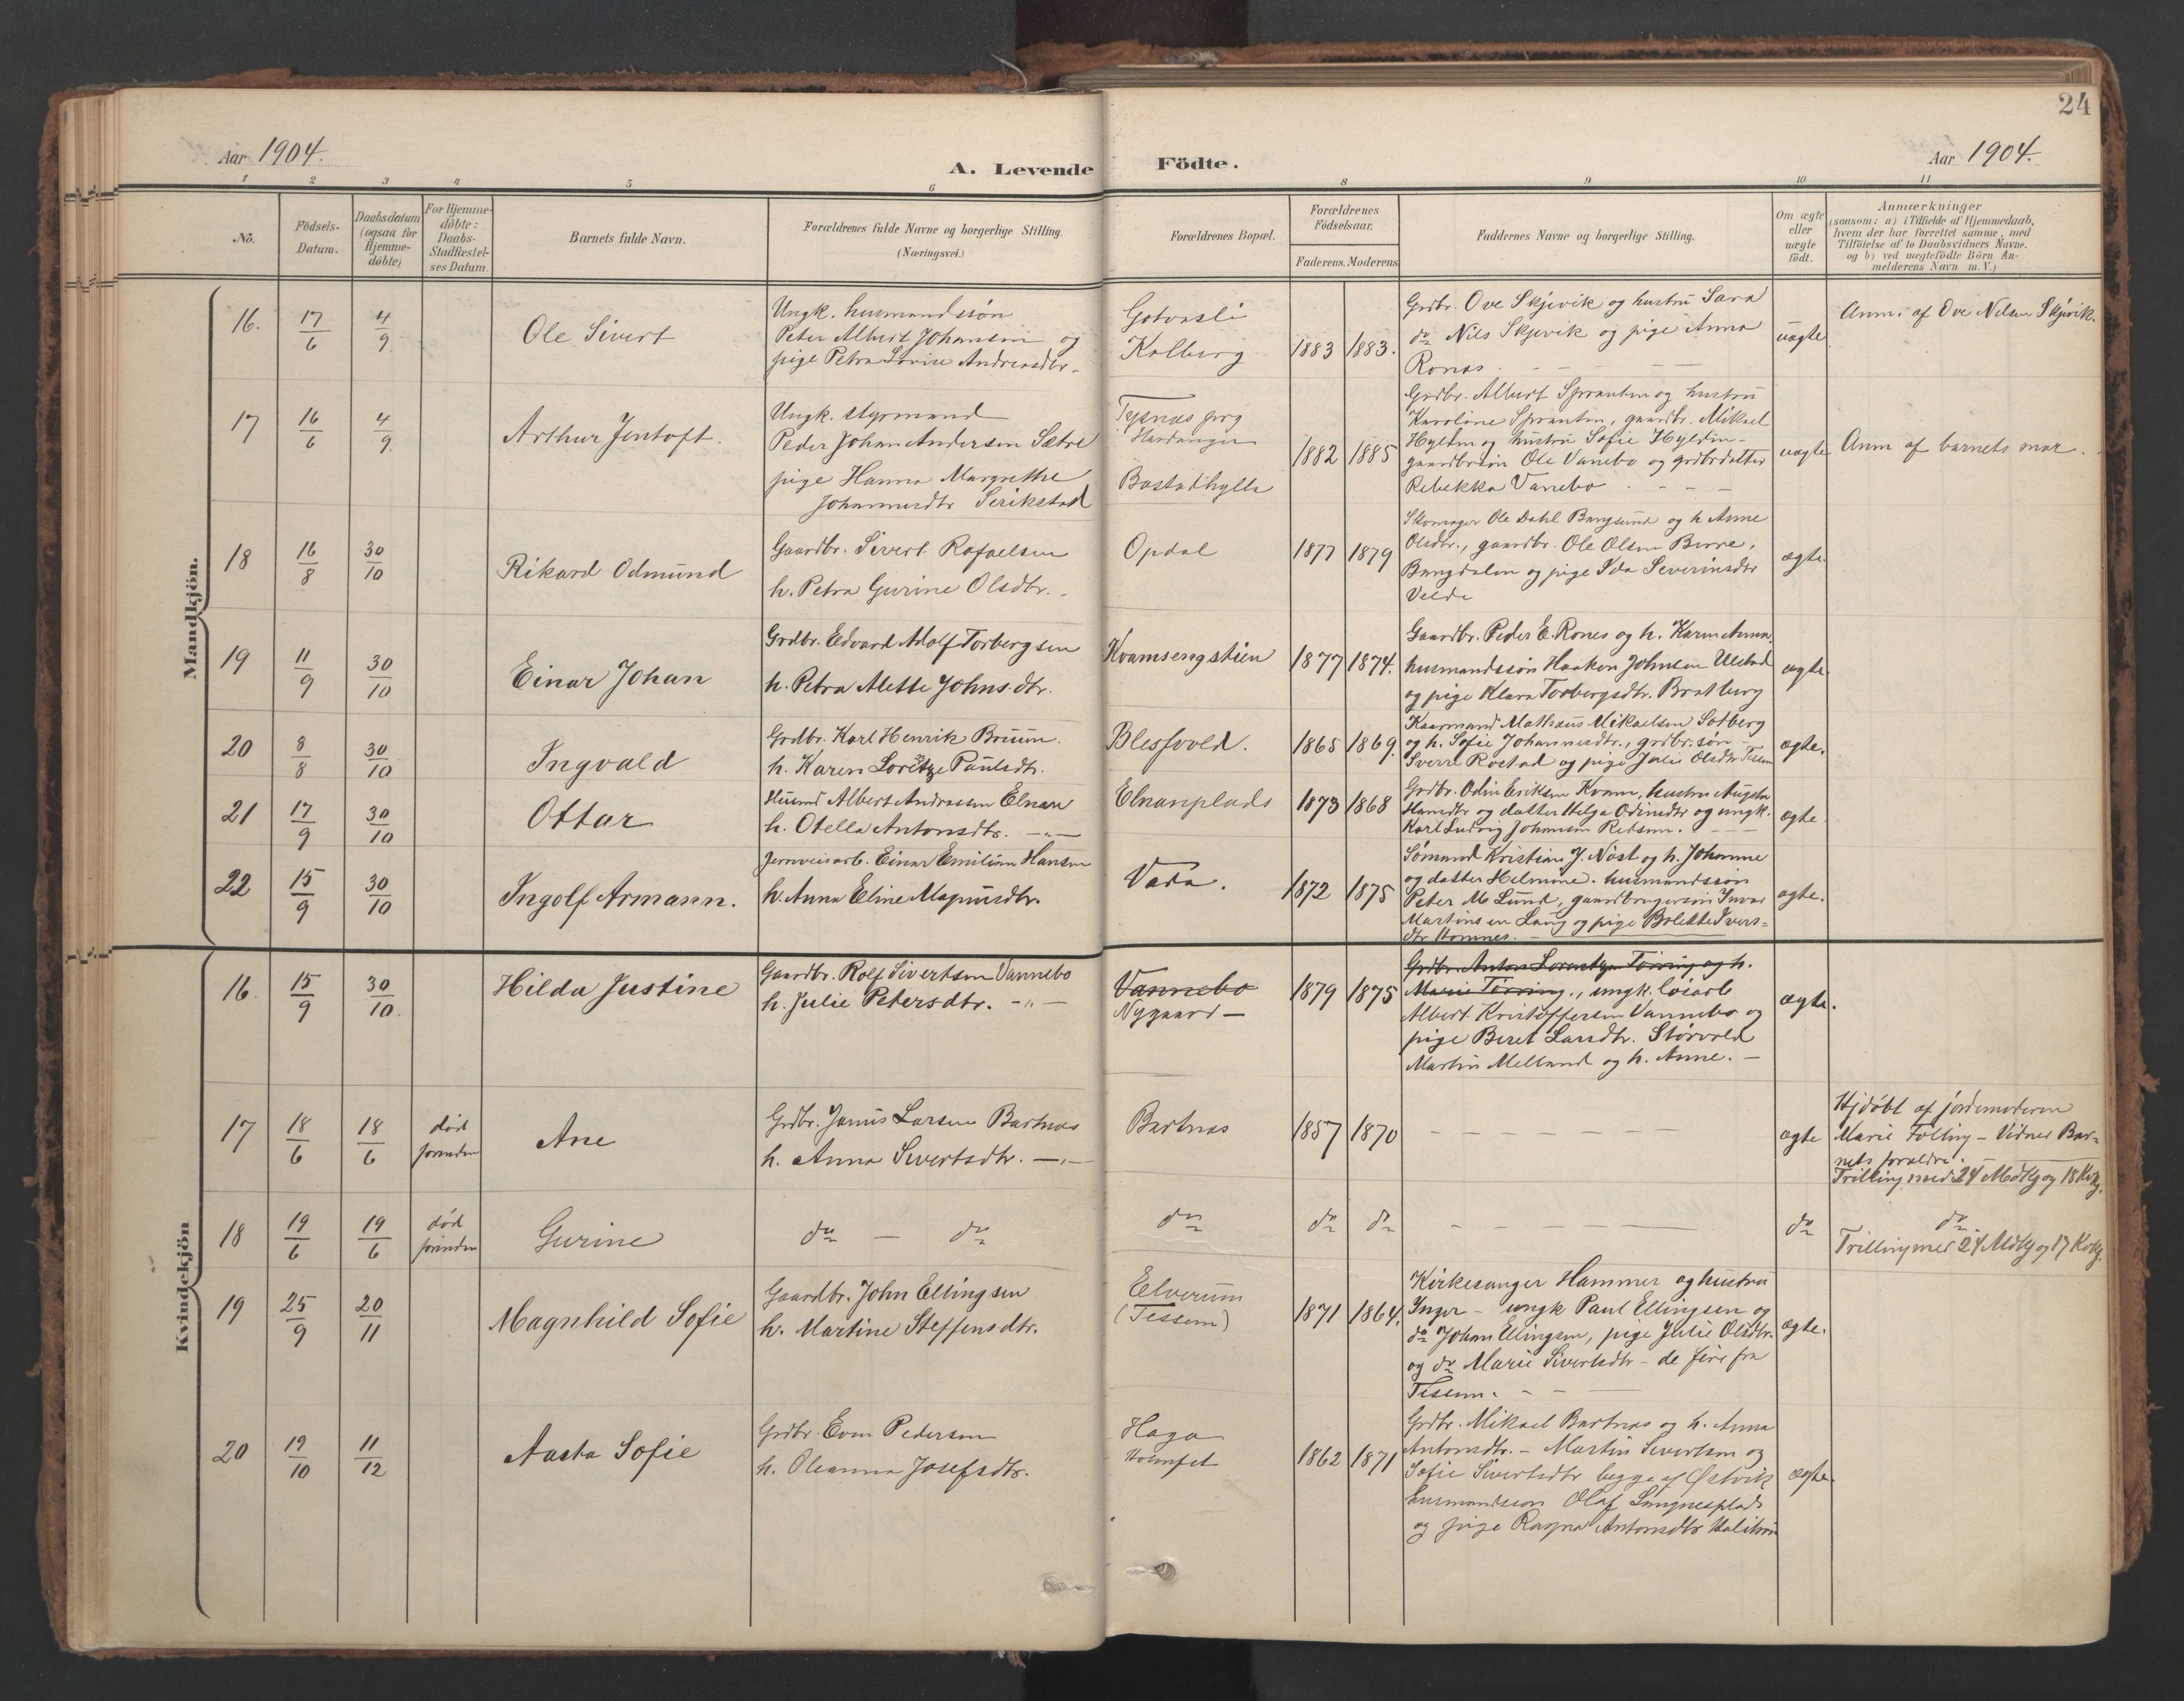 24
Aar 1904.
A. Levende Födte.
Aar 1904.
1 2 3 4 5 6 8 9 10 11
No.
Födsels-Datum.
Daabsdatum (ogsaa for Hjemme-döbte)
For Hjemme-döbte: Daabs-Stadfæstel-ses Datum.
Barnets fulde Navn.
Forældrenes fulde Navne og borgerlige Stilling.
(Næringsvei.)
Forældrenes Bopæl.
Forældrenes Födselsaar.
Faderens. Moderens.
Faddernes Navne og borgerlige Stilling.
Om ægte eller uægte födt.
Anmærkninger
(saasom: a) i Tilfælde af Hjemmedaab,
hvem der har forrettet samme, med
Tilföielse af to Daabsvidners Navne.
og b) ved uægtefödte Börn An-
melderens Navn m. V.)
Mandkjön.
16. 17/6 4/9 Ole Sivert
Ungk. husmandssøn
Peter Albert Johansen og
pige Petra Lovise Andreasdtr.
Gotvasli
Kolberg
1883 1883.
Grdbr. Ove Skjevik og hustru Sara
do Nils Skjevik og pige Anna
Ronas.
uægte
Anm. af Ove Nelsen Skjevik.
17 16/6 4/9 Arthur Jentoft.
Ungk. styrmand
Peder Johan Andersen Sætre
pige Hanna Margrethe
Johannesdtr
Tysnæs prg
Hardanger
Bostadhylla
1882 1885
Grdbr. Albert og hustru
Karoline gaardbr. Mikael
og hustru Sofie
gaardbrsøn Ole Vanebo og grdbrdatter
Rebekka Vanebo
uægte
Anm af barnets mor.
18 16/8 30/10 Rikard Odmund
Gaardbr. Sivert Rafaelsen
h. Petra Gurine Olsdtr.
Opdal
1877 1879
Skomager Ole Dahl Bangsund og h Anne
Olsdtr., gaardbr. Ole Olsen
Bangdalen og pige Ida Severinsdtr
ægte.
19 11/9 30/10 Einar Johan
Grdbr. Edvard Adolf Torbergsen
h. Petra Alette Johnsdtr.
Kvamsengstien
1877 1874.
Gaardbr. Peder E. Rones og h. Karen Anna.
husmandssøn Haakon Johnsen Ulstad
og pige Klara Torbergsdtr. Bratberg
ægte.
20 8/8 30/10 Ingvald
Grdbr. Karl Henrik Bruun.
h. Karen Loretze Paulsdtr.
Blesfvold.
1865 1869.
Kaarmand Mathæus Mikaelsen Solberg
og h. Sofie Johannesdtr., grdbr.søn
Sverre Rostad og pige Julie Olsdtr Tessem
ægte.
21 17/9 30/10 Ottar
Husmd Albert Andreassen Elnan
h. Otella Antonsdtr. —"—
Elnanplads
1873 1868
Grdbr. Odin Eriksen Kvam, hustru Augsta
Hansdtr og datter Helga Odinsdtr og ungk.
Karl Ludvig Johansen
ægte
22 15/9 30/10 Ingolf Armann.
Jernveisarb. Einar Emilian Hansen
h. Anna Eline Magnusdtr.
Vada.
1872 1875
Sømand Kristian J. Nøst og h. Johanne
og datter Helmine. husmandssøn
Peter M Lund, gaardbrugersøn Invar
Martinsen Laug og pige Bolette Ivers-
dtr Homnes.
ægte.
Kvindekjön
16. 15/9 30/10 Hilda Justine
Gaardbr. Rolf Sivertsen Vannebo
h. Julie Petersdtr. —"—
Vannebo
Nygaard —
1879 1875
Grdbr. Anton Lorentzen Tørring og h.
Marie Tørring., ungk. løsarb
Albert Kristoffersen Vannebo og
pige Beret Larsdtr. Størvold
Martin Melland og h. Anne. —
ægte.
17 18/6 18/6 død forinden Ane
Grdbr. Janus Larsen Bartnes
h. Anna Sivertsdtr. —"—
Bartnes
1857 1870
ægte
Hjdøbt af jordemoderen
Marie Følling – Vidner Bar-
nets forældre.
Trilling med 24 Mdkj og 18 Kvkj.
18 19/6 19/6 død forinden Gurine
do — do
do
do do
do
do
Trilling med 24 Mdkj og 17 Kvkj.
19 25/9 20/11 Magnhild Sofie
Gaardbr. John Ellingsen
h. Martine Steffensdtr.
Elverum
(Tessem)
1871 1864.
Kirkesanger Hammer og hustru
Inger – ungk Paul Ellingsen og
do Johan Ellingsen, pige Julie Olsdtr.
og do Marie Sivertsdtr – de fire fra
Tessem.
ægte.
20 19/10 11/12 Aasta Sofie
Grdbr. Even Pedersen
h. Oleanna Josefsdtr.
Haga
1862 1871
Grdbr. Mikael Bartnes og h. Anna
Antonsdtr. – Martin Sivertsen og
Sofie Sivertsdtr begge af Østvik
husmandssøn Olaf Langnesplads
og pige Ragna Antonsdtr
ægte.